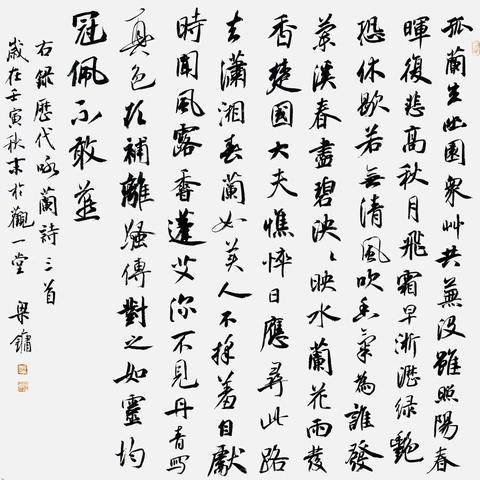 孤蘭生幽園眾艸共蕪沒雖照陽春
暉復悲高秋月飛霜早淅瀝綠艷
恐休歇若無清風吹香氣為誰發
蘭溪春盡碧泱〻映水蘭花雨發
香楚國大夫憔悴日應尋此路
去瀟湘春蘭如美人不採羞自獻
時聞風露香蓬艾深不見丹青寫
真色欲補離騷傳對之如靈均
冠佩不敢燕
右錄歷代咏蘭詩三首
歲在壬寅秋末於觀一堂 梁鏞